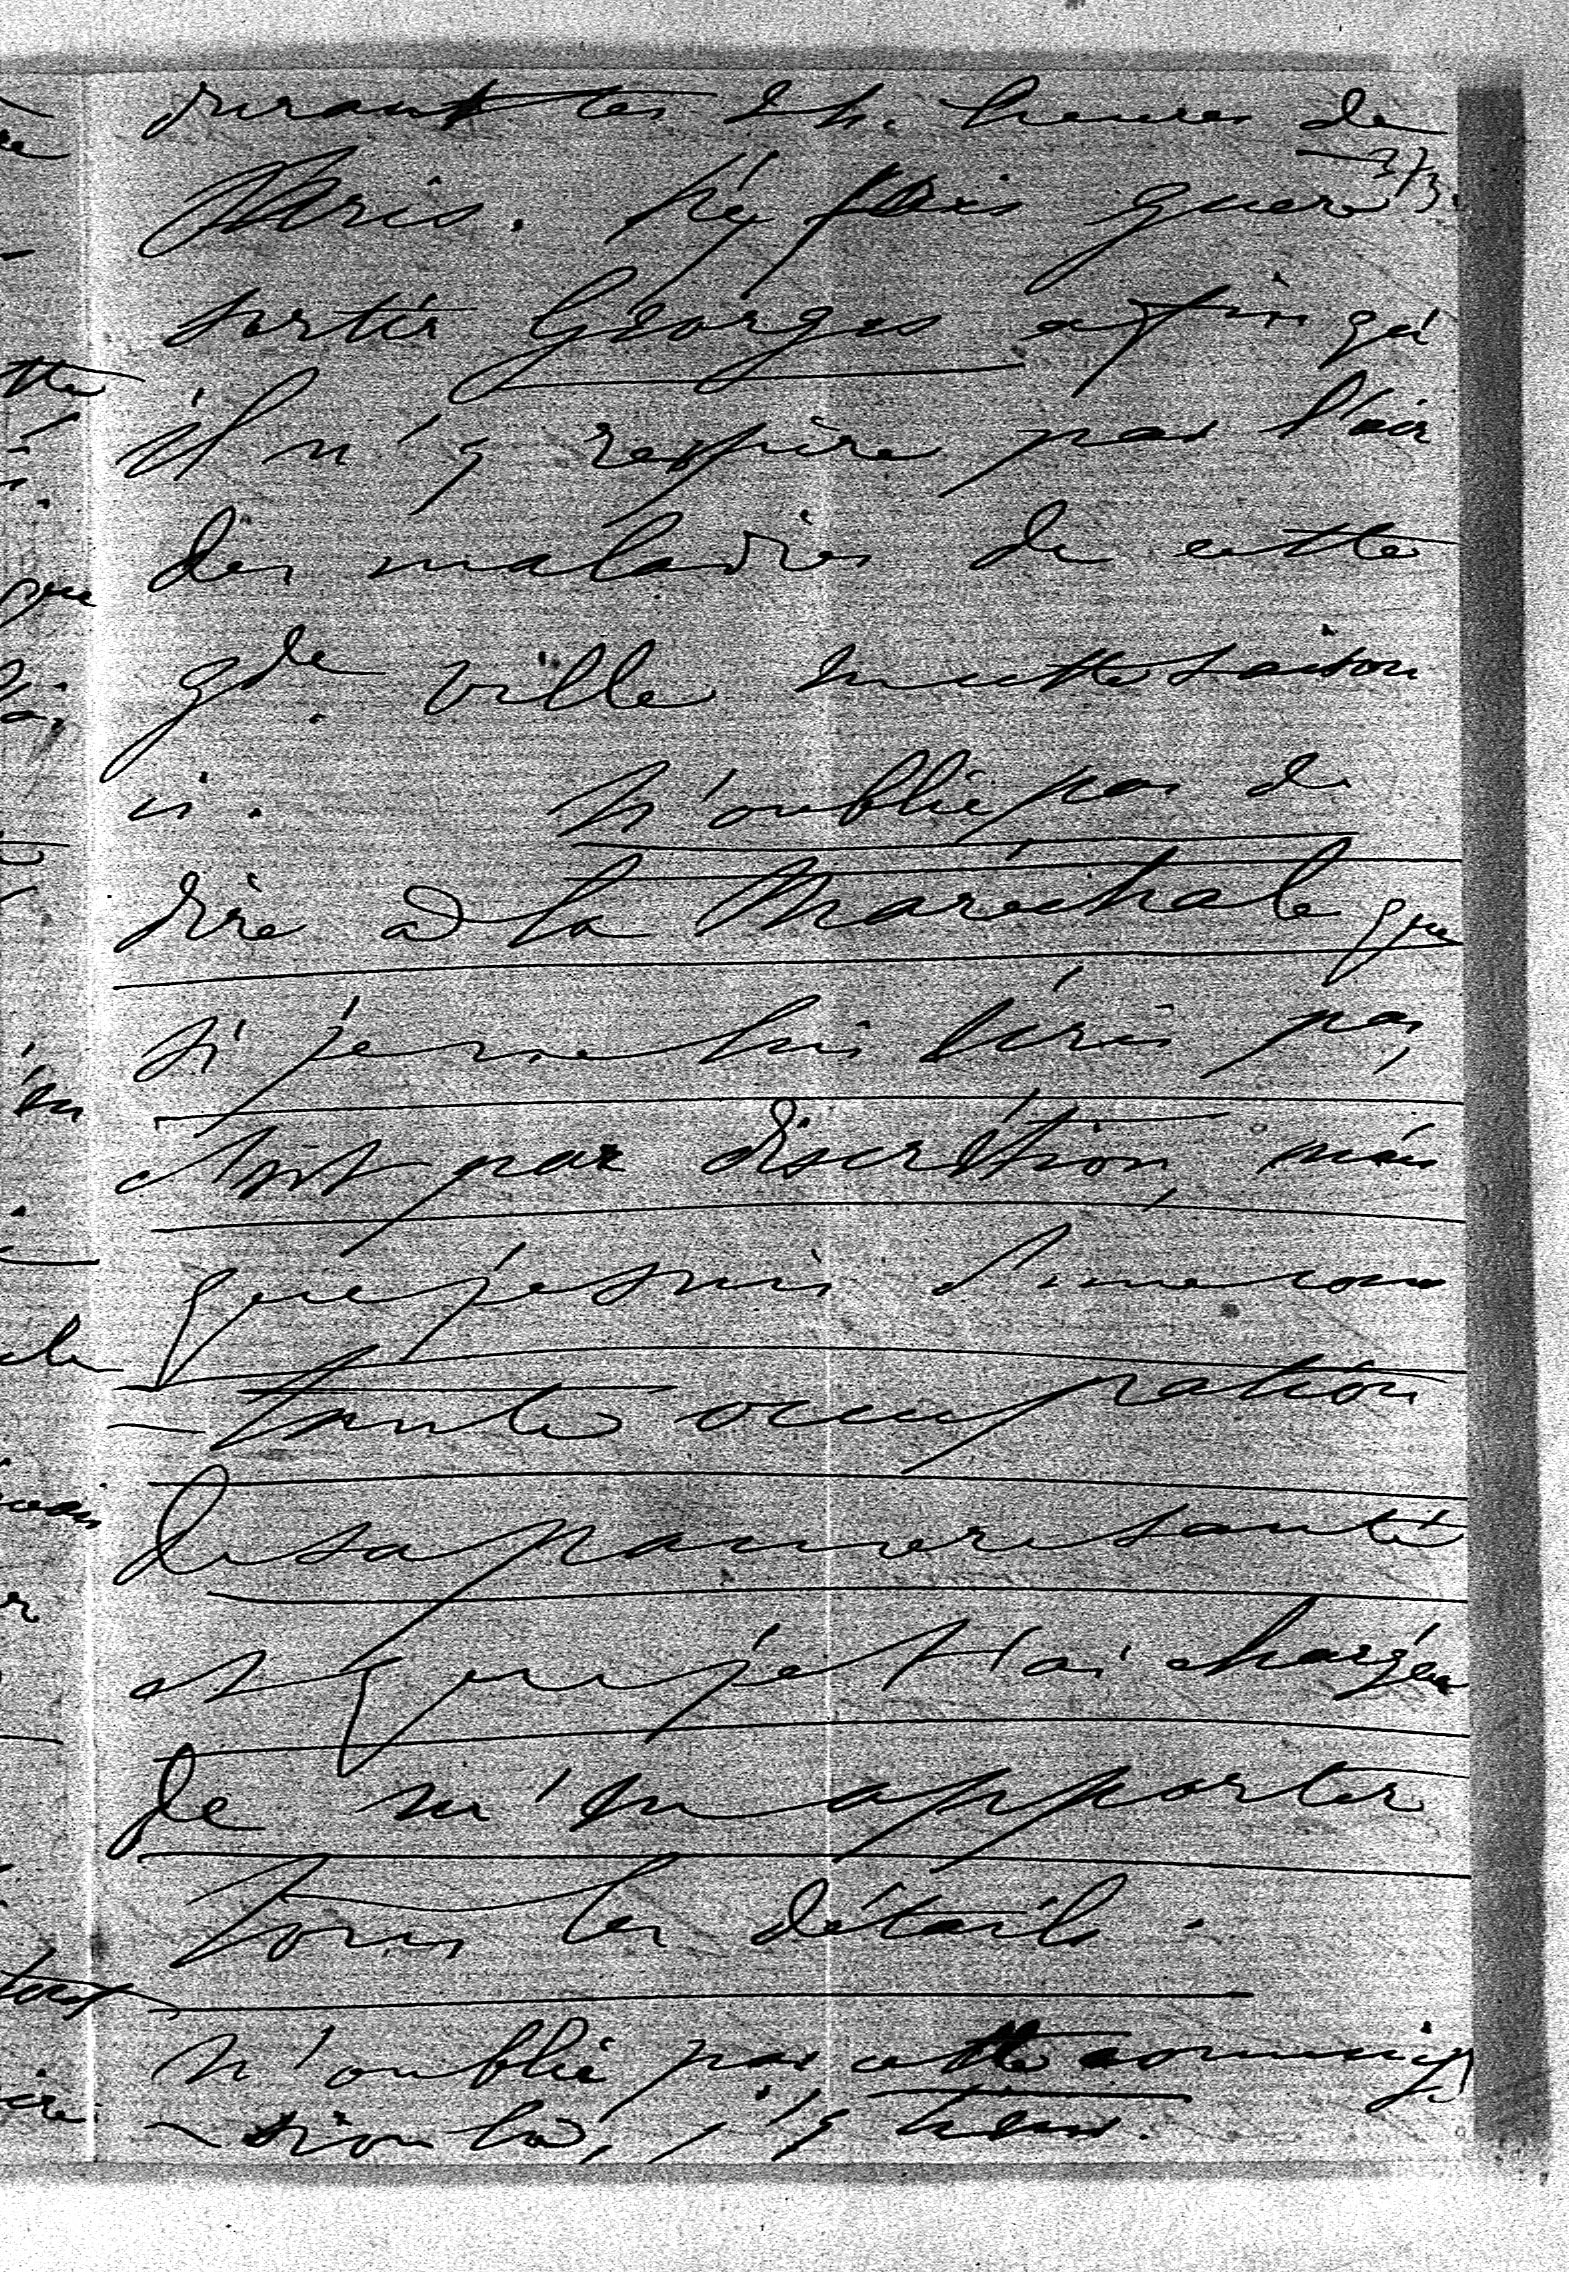 durant tes 2 h. heures de
373.
Paris. Né fais guere
sortir Géorges afin qu'
il n'y respire pas l'air
des maladies de cette
gde ville en cette saison
ci. N'oublie pas de
dire à la Maréchale que
si je ne lui écris pas,
c'est par discrétion, mais
que je suis d'une cons
- tante occupation
de sa pauvre santé
et que je t'ai chargée
de m'en apporter
tous les détails.
N'oublie pas cette commis
- sion là, j'y tiens.